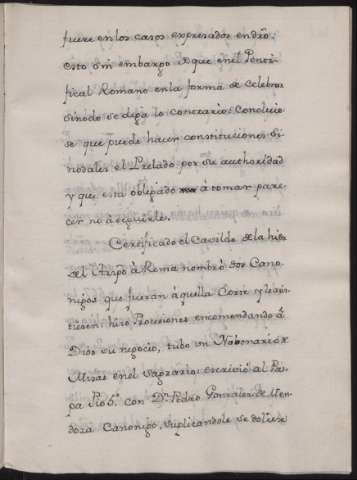 fuere en los casos expresados endro:
esto sin embargo de que en el Ponti-
fical Romano en la forma de celebrar
sinodo se diga lo contrario: Concluio-
se que puede hacer constituciones Si-
nodales el Prelado por su authoridad
y que está obligado à tomar pare-
cer no à seguirle.
Certificado el Cavildo de la hida
del Arzpo à Roma nombró dos Cano-
nigos que fueran à aquella Corte y le asis-
tiesen: hizo Prosesiones encomendando à
Dios su negocio, tubo un Nobenario de
Misas en el Sagrario: escriviò al Pa-
pa Pio 5º con Dn Pedro Gonzalez de Men-
doza Canonigo, suplicandole se doliese